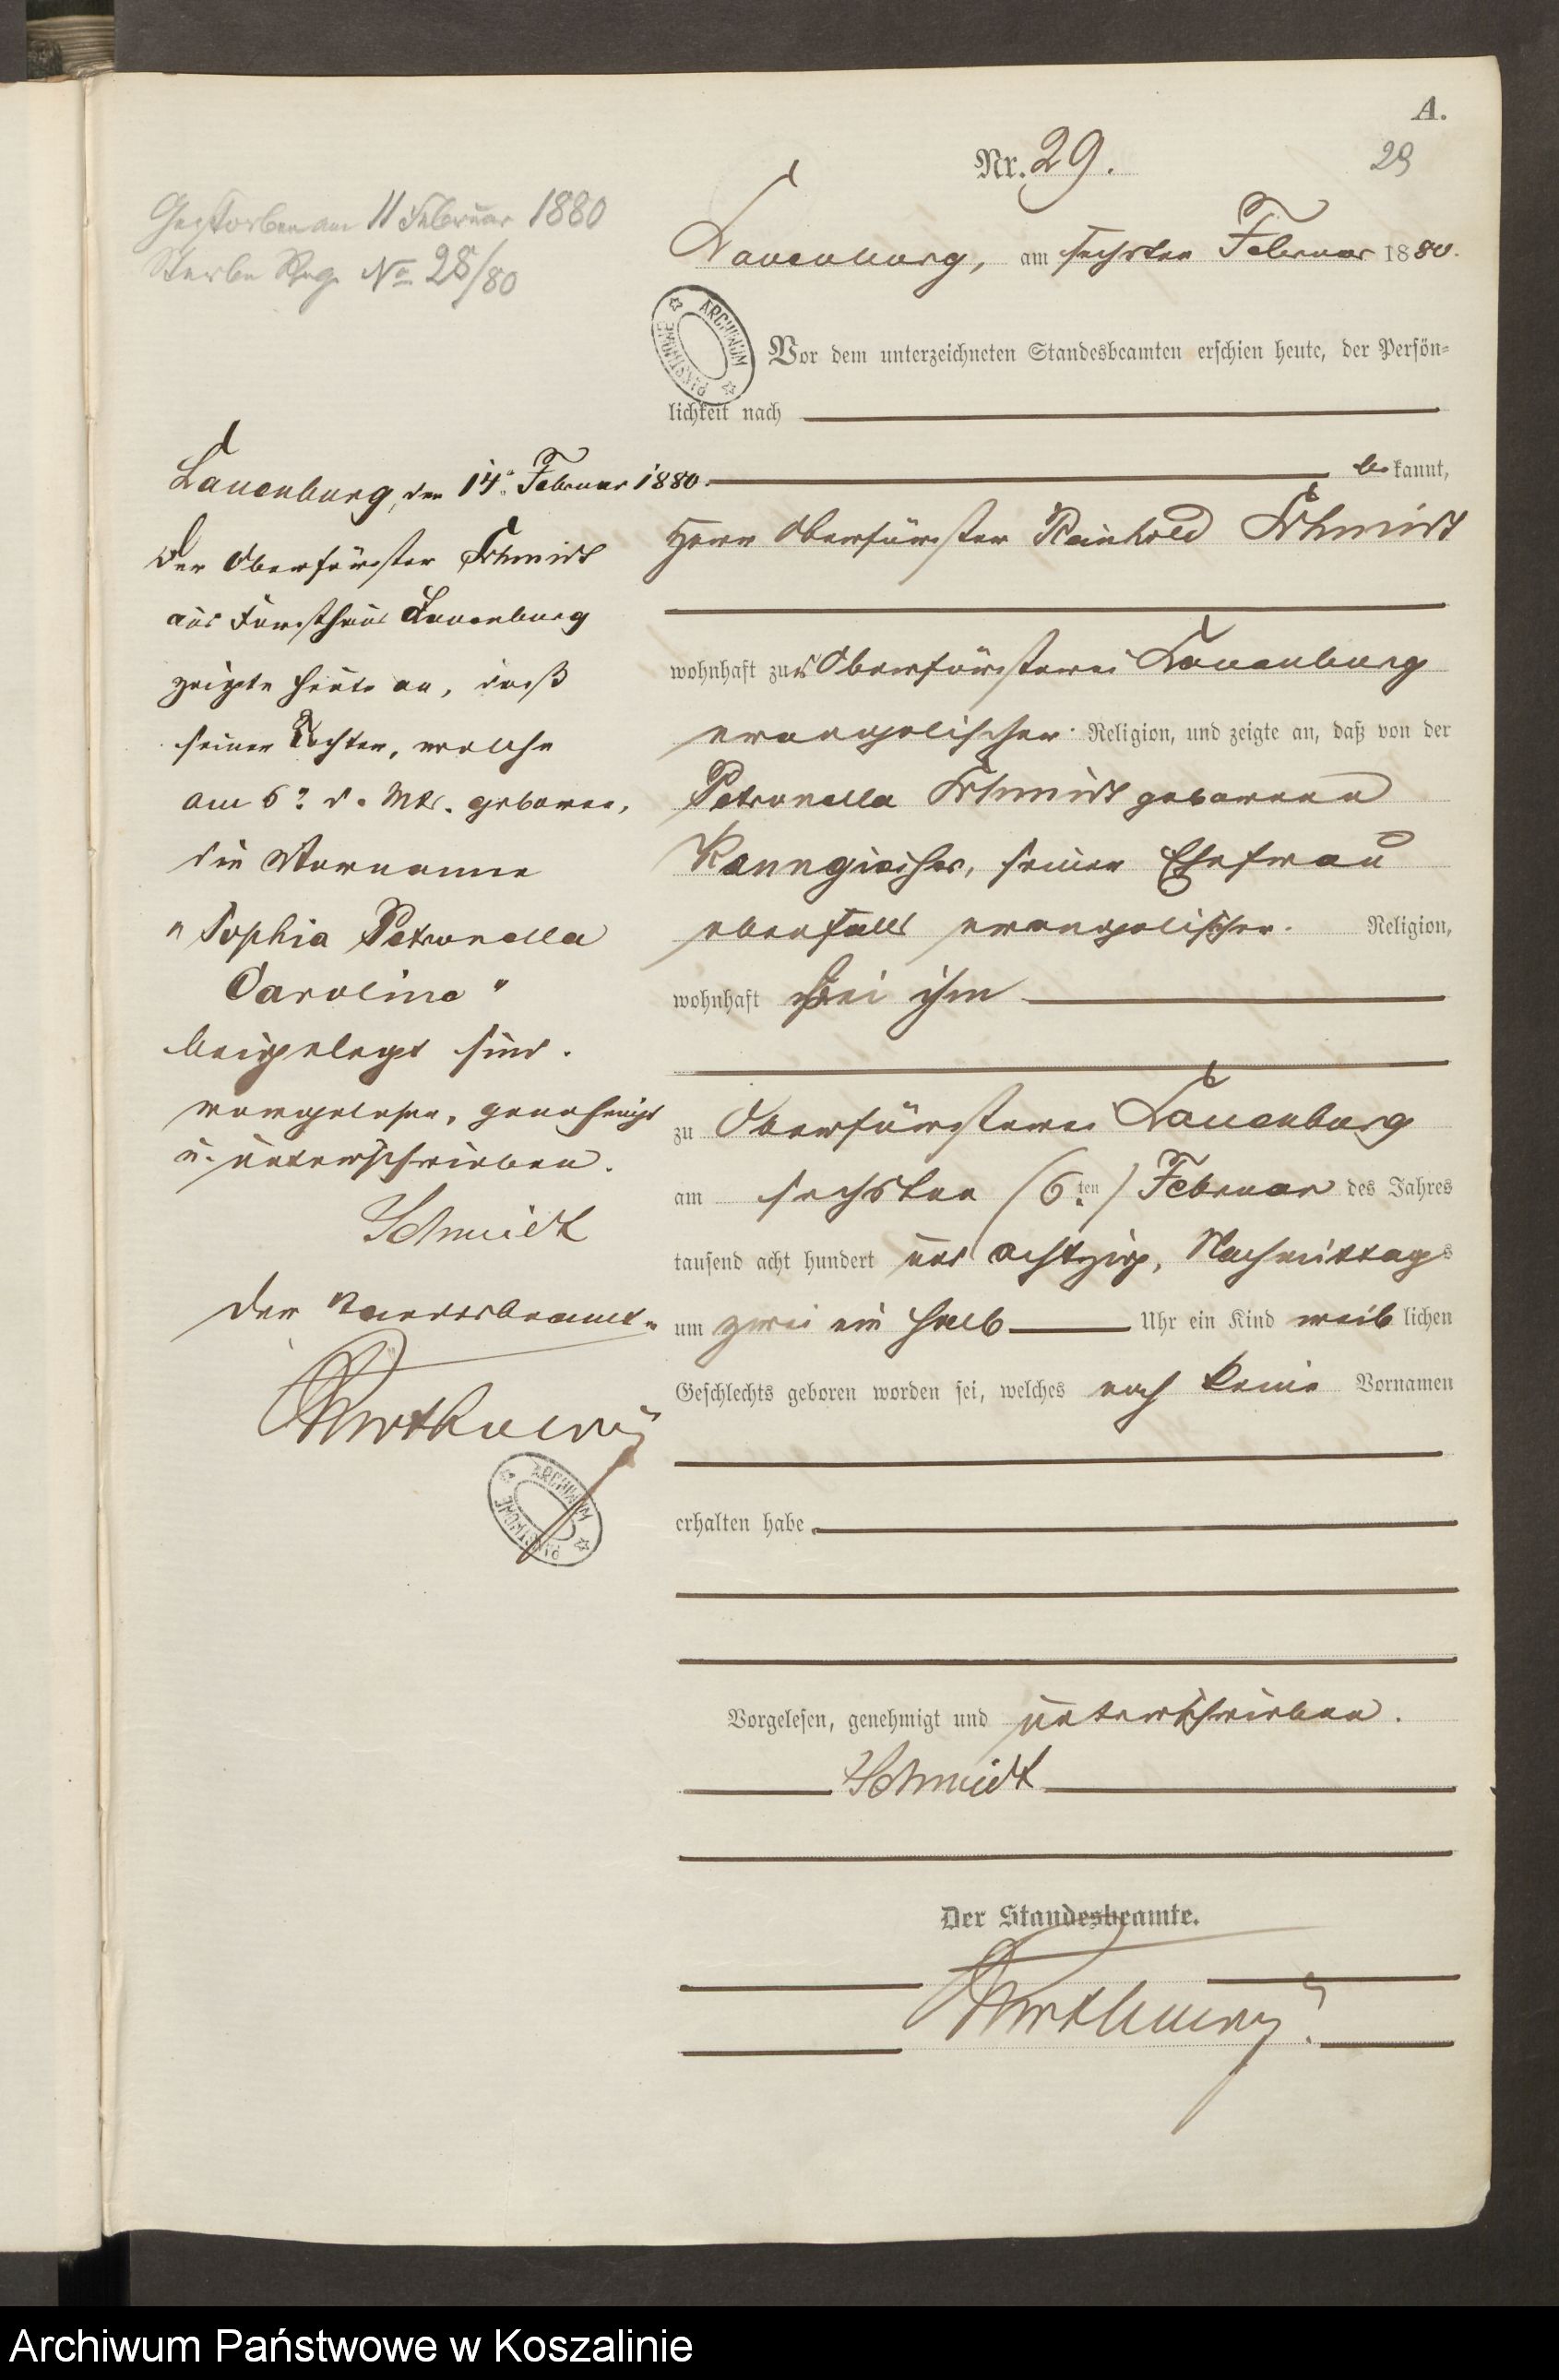 A.
Nr. 29.
29
Gestorben am 11 Februar 1880
Sterbe Reg. No 28/80
Lauenburg, am sechsten Februar 1880.
ARCHIWUM PAŃSTWOWE
Vor dem unterzeichneten Standesbeamten erschien heute, der Persön-
lichkeit nach
bekannt,
Herr Oberförster Reinhold Schmidt
wohnhaft zur Oberförsterei Lauenburg
evangelischer Religion, und zeigte an, daß von der
Petronella Schmidt geborenen
Kanngiesser, seiner Ehefrau
ebenfalls evangelischer Religion,
wohnhaft bei ihm
zu Oberförsterei Lauenburg
am sechsten (6ten) Februar des Jahres
tausend acht hundert und achtzig, Nachmittags
um zwei ein halb Uhr ein Kind weiblichen
Geschlechts geboren worden sei, welches noch keine Vornamen
erhalten habe.
Vorgelesen, genehmigt und unterschrieben.
Schmidt
Der Standesbeamte.
Lauenburg, den 14. Februar 1880.
Der Oberförster Schmidt
aus Forsthaus Lauenburg
zeigte heute an, daß
seiner Tochter, welche
am 6. d. Mts. geboren,
die Vornamen
"Sophia Petronella
Caroline"
beigelegt sind.
vorgelesen, genehmigt
u. unterschrieben.
Schmidt
Der Standesbeamte
ARCHIWUM PAŃSTWOWE
Archiwum Państwowe w Koszalinie